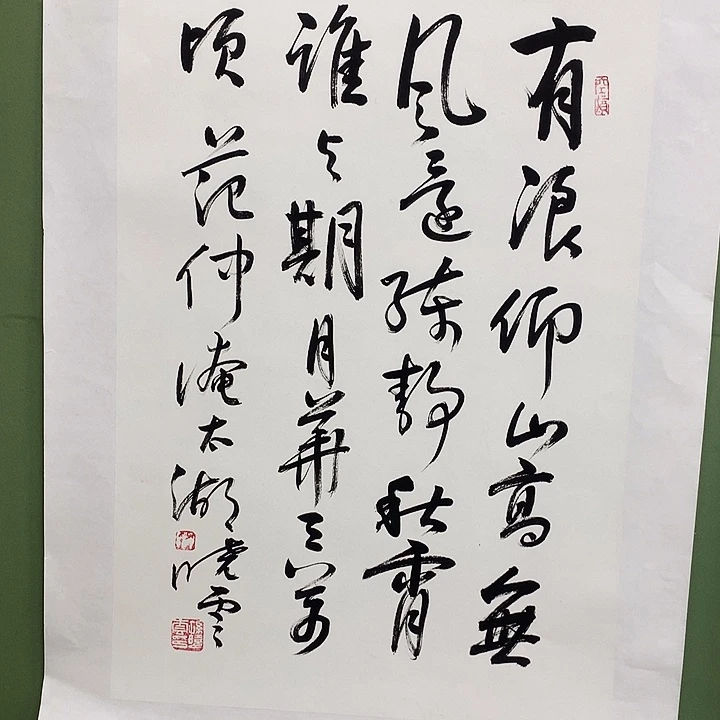 有浪仰山高無
風還練靜秋霄
誰与期月華三万
頃范仲淹太湖曉雲